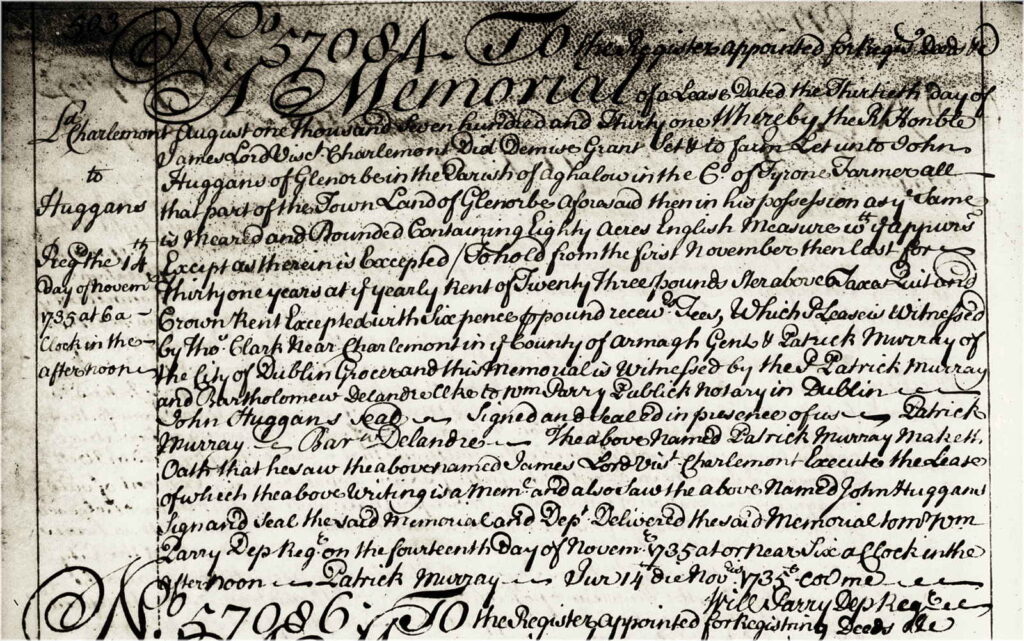 503
No. 57084. To the Register appointed for Regis.g Deeds &c
A Memorial of a Lease Dated the Thirtieth day of
Ld Charlemont
to
Huggans
Reg.d the 14th
Day of Novem.r
1735 at 6 a
Clock in the
afternoon
August one Thousand Seven hundred and thirty one Whereby the Rt Honble
James Lord Visct Charlemont Did Demise Grant Set & to farm Let unto John
Huggans of Glenorbe in the Parish of Aghalow in the Co. of Tyrone Farmer all
that part of the Town Land of Glenorbe aforesaid then in his possession as ye Same
is Meared and Bounded Containing Eighty Acres English Measure wth ye appurs
Except as therein is Excepted To hold from the first November then last for
Thirty one years at ye yearly Rent of Twenty Three pounds Ster above Taxes Quit and
Crown Rent Excepted with Six pence p pound receivrs Fees, Which Lease is Witnessed
by Tho.s Clark Near Charlemont in ye County of Armagh Gent & Patrick Murray of
the City of Dublin Grocer and this Memorial is Witnessed by the Sd Patrick Murray
and Bartholomew Delandre Clke to Wm Parry Publick Notary in Dublin
John Huggans Seal Signed and Sealed in presence of us Patrick
Murray Barw Delandre The above Named Patrick Murray Maketh
Oath that he saw the above named James Lord Visct Charlemont Execute the Lease
of which the above Writing is a Meml and also Saw the above Named John Huggans
Sign and Seal the said Memorial and Dept Delivered the said Memorial to Mr Wm
Parry Dep Regr on the fourteenth Day of Novemr 1735 at or near Six a Clock in the
afternoon Patrick Murray Jur 14o die Novris 1735 cor me
Will Parry Dep Regr
No. 57086. To the Register appointed for Registring Deeds &c